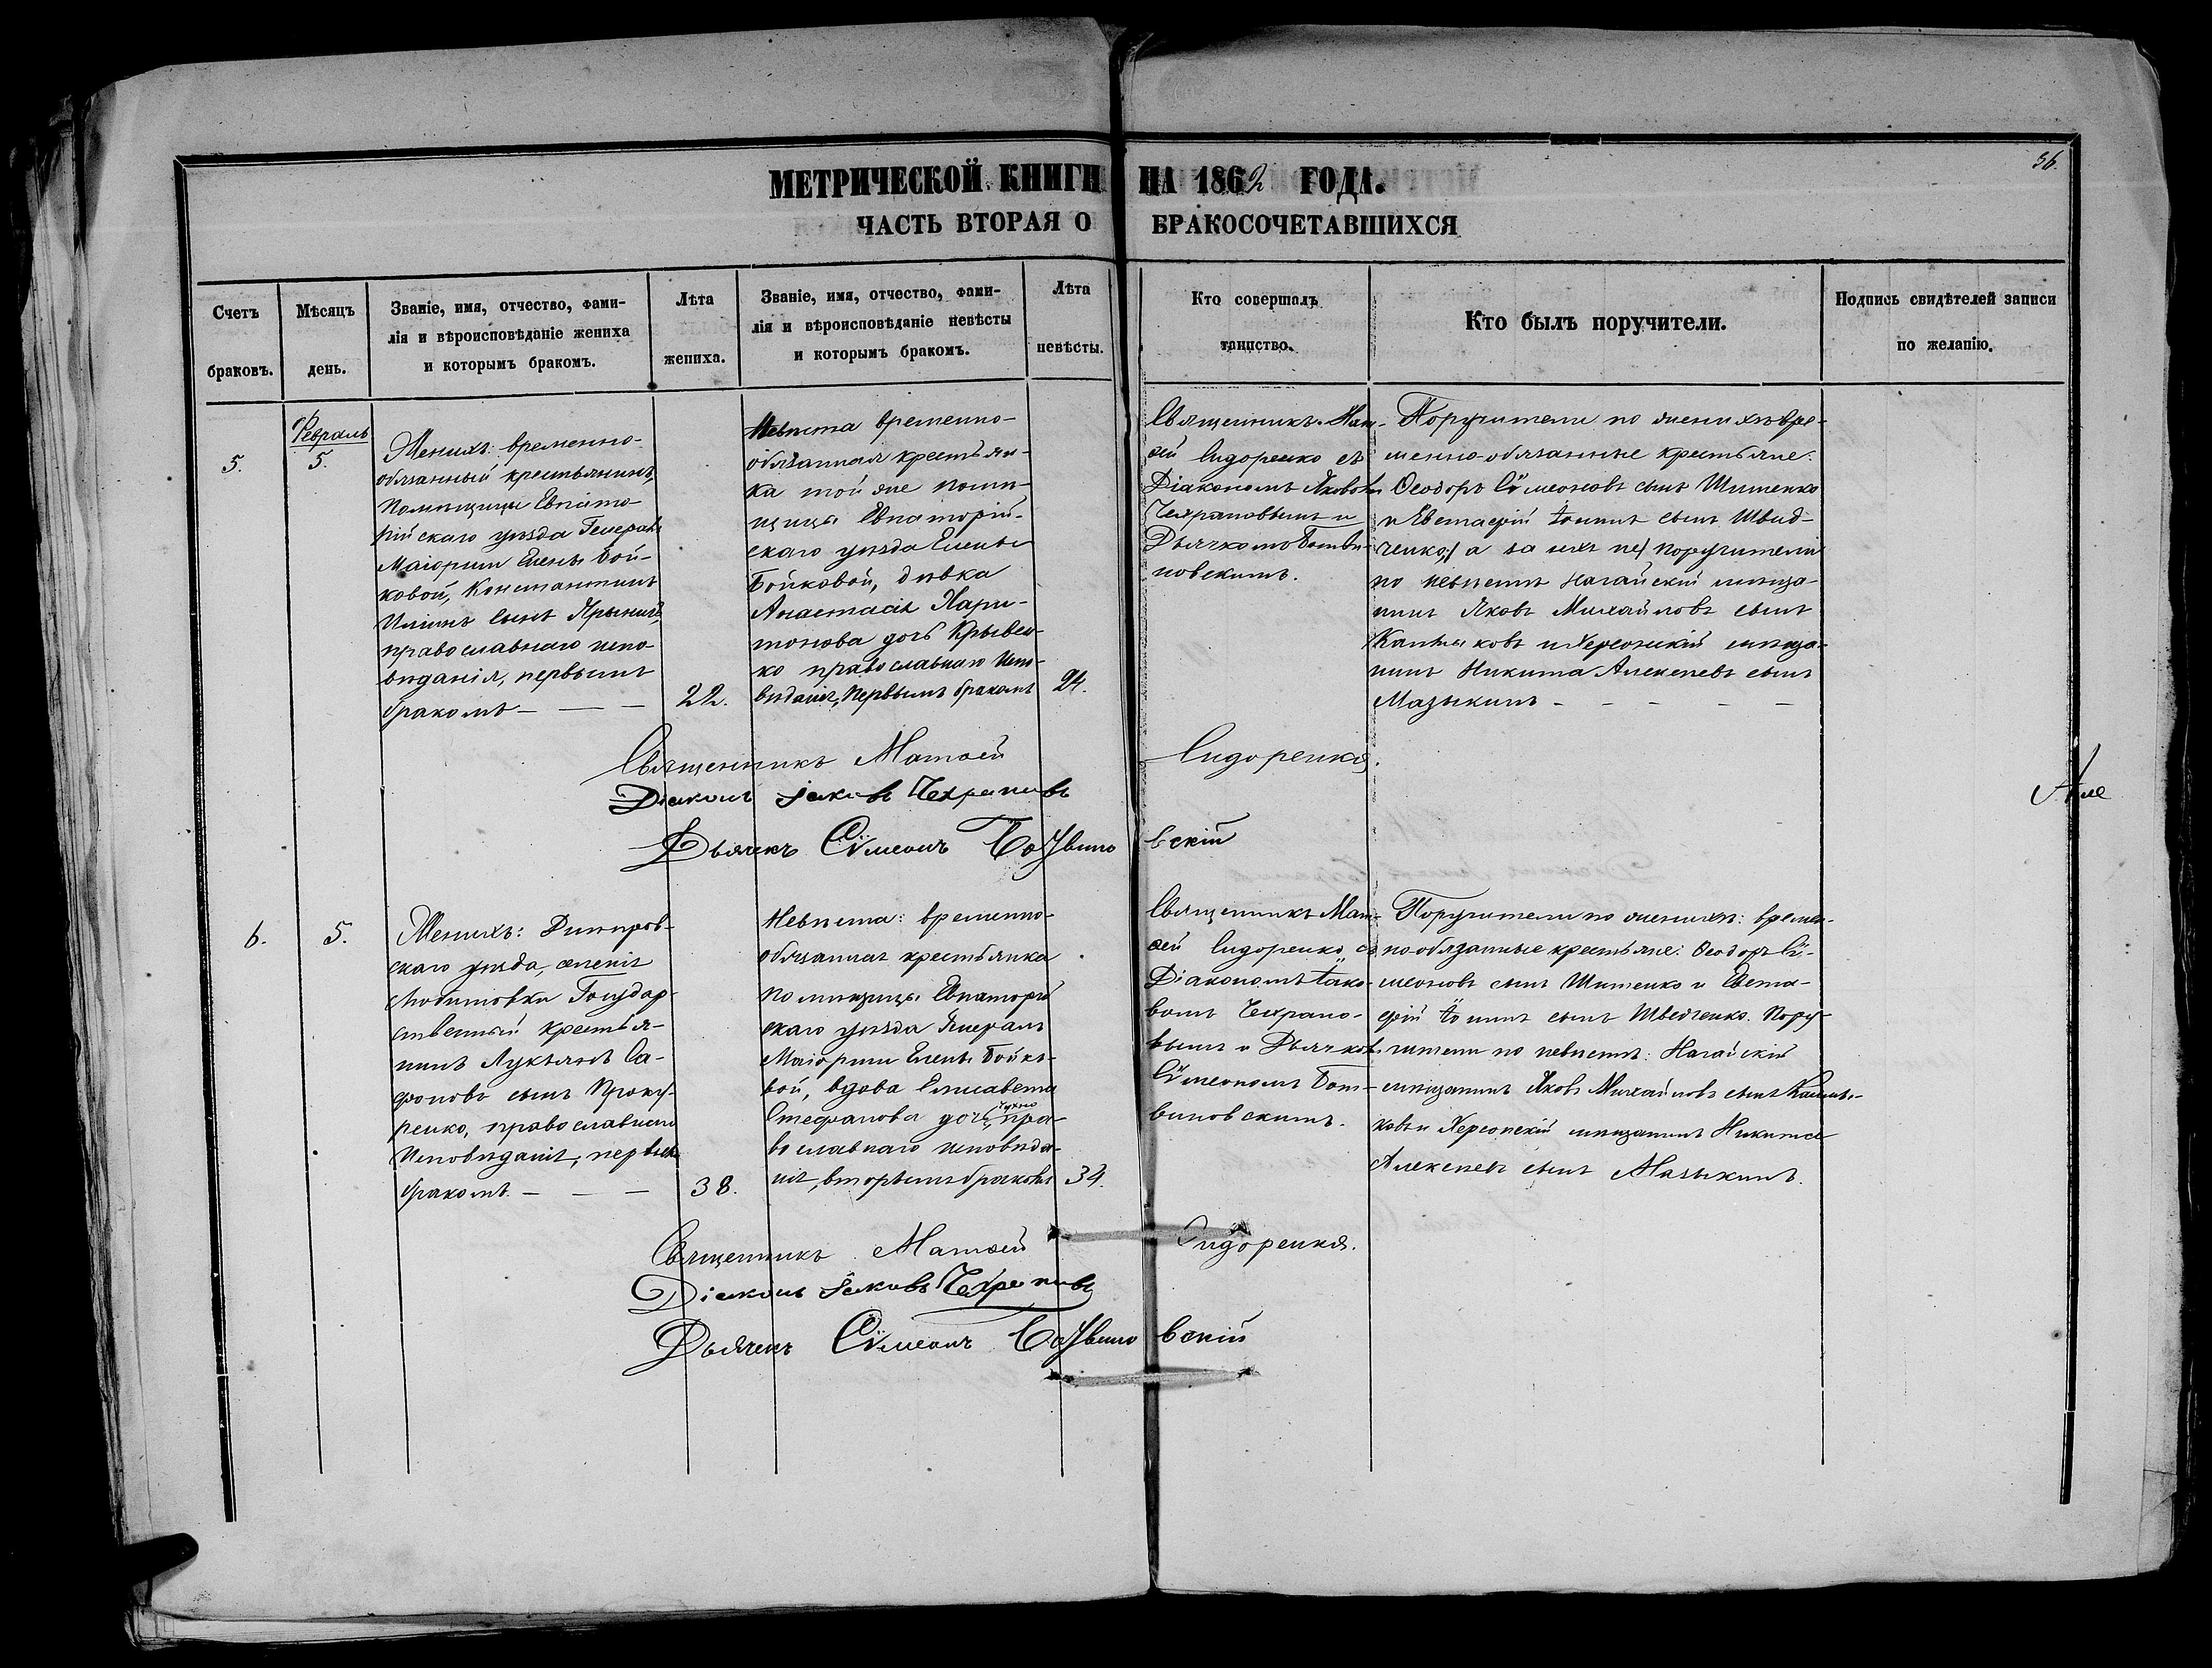 36.
МЕТРИЧЕСКОЙ КНИГИ НА 1862 ГОДА.
ЧАСТЬ ВТОРАЯ О БРАКОСОЧЕТАВШИХСЯ
Счетъ браковъ.
Мѣсяцъ день.
Званіе, имя, отчество, фами-
лія и вѣроисповѣданіе жениха
и которымъ бракомъ.
Лѣта
жениха.
Званіе, имя, отчество, фами-
лія и вѣроисповѣданіе невѣсты
и которымъ бракомъ.
Лѣта
невѣсты.
Кто совершалъ
таинство.
Кто былъ поручители.
Подпись свидѣтелей записи
по желанію.
5.
Февраль
5.
Женихъ: временно-
обязанный крестьянинъ,
Помѣщицы Евпато-
рійскаго уѣзда Генералъ
Маіорши Елены Бой-
ковой, Константинъ
Иліинъ сынъ
православнаго испо-
вѣданія, первымъ
бракомъ — — —
22.
Невѣста временно-
обязанная крестьян-
ка той же помѣ-
щицы Евпаторій-
скаго уѣзда Елены
Бойковой, дѣвка
Анастасія Хари-
тонова дочь Крывен-
ко православнаго испо-
вѣданія, первымъ бракомъ
24.
Священникъ Мат-
ѳей Сидоренко съ
Діакономъ Яковомъ
Чехрановымъ и
Дьячкомъ Ботви-
новскимъ.
Поручители по женихѣ вре-
менно-обязанные крестьяне:
Ѳеодоръ Сѵмеоновъ сынъ Шитенко
и Евстафій Іоинъ сынъ Швид-
ченко, а за нихъ не поручители
по невѣстѣ Нагайскій мѣща-
нинъ Яковъ Михайловъ сынъ
и Херсонскій мѣща-
нинъ Никита Алексѣевъ сынъ
Мазыкинъ — — — — —
Священникъ Матѳей Сидоренко.
Діаконъ Іаковъ Чехрановъ
Дьячекъ Сѵмеонъ Ботвиновскій
Але
6.
5.
Женихъ: Днѣпров-
скаго уѣзда, селенія
Любимовки Государ-
ственный крестья-
нинъ Лукьянъ Са-
фоновъ сынъ Проку-
ренко, православнаго
Исповѣданія, первымъ
бракомъ. — — —
38.
Невѣста: временно-
обязанная крестьянка
помѣщицы Евпаторій
скаго уѣзда Генералъ
Маіорши Елены Бойко-
вой, вдова Елисавета
Стефанова дочь Чухно пра-
вославнаго исповѣда-
нія, вторымъ бракомъ
34.
Священникъ Мат-
ѳей Сидоренко съ
Діакономъ Іако-
вомъ Чехрано-
вымъ и Дьячкомъ
Сѵмеономъ Бот-
виновскимъ.
Поручители по женихѣ: времен-
нообязанные крестьяне: Ѳеодоръ Сѵ-
меоновъ сынъ Шитенко и Евста-
фій Іоинъ сынъ Шведченко. Пору-
чители по невѣстѣ: Нагайскій
мѣщанинъ Яковъ Михайловъ сынъ
и Херсонскій мѣщанинъ Никита
Алексѣевъ сынъ Мазыкинъ.
Священникъ Матѳей Сидоренко.
Діаконъ Іаковъ Чехрановъ
Дьячекъ Сѵмеонъ Ботвиновскій